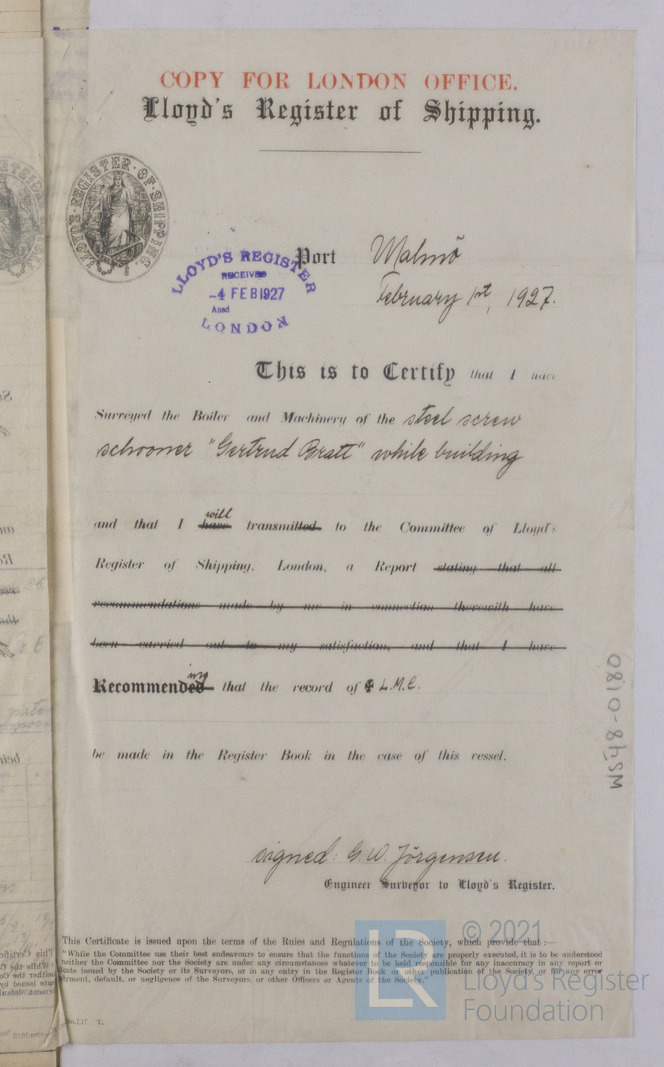 COPY FOR LONDON OFFICE.
Lloyd's Register of Shipping.
LLOYD'S REGISTER OF SHIPPING
LLOYD'S REGISTER
RECEIVED
-4 FEB 1927
LONDON
Port Malmö
February 1st, 1927.
This is to Certify that I have
Surveyed the Boiler and Machinery of the steel screw
schooner "Gertrud Bratt" while building
will
and that I have transmitted to the Committee of Lloyd's
Register of Shipping, London, a Report stating that all
recommendations made by me in connection therewith have
been carried out to my satisfaction, and that I have
ing
Recommended that the record of ✠ L.M.C.
be made in the Register Book in the case of this vessel.
MS48-0180
signed: G.W. Jörgensen.
Engineer Surveyor to Lloyd's Register.
This Certificate is issued upon the terms of the Rules and Regulations of the Society, which provide that:—
"While the Committee use their best endeavours to ensure that the functions of the Society are properly executed, it is to be understood
neither the Committee nor the Society are under any circumstances whatever to be held responsible for any inaccuracy in any report or
icate issued by the Society or its Surveyors, or in any entry in the Register Book or other publication of the Society, or for any error
dgment, default, or negligence of the Surveyors, or other Officers or Agents of the Society."
LR
© 2021
Lloyd's Register
Foundation